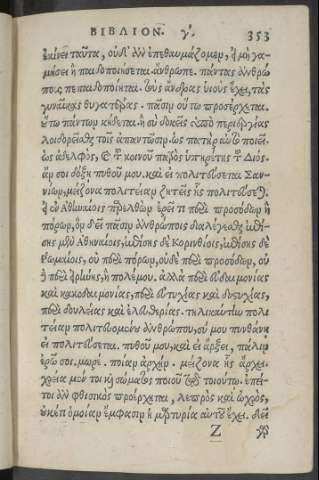 ΒΙΒΛΙΟΝ. γ'. 353
ἐκίνει ταῦτα, οὐδ' ἂν ἐπεθαυμάζομεν, εἰ μὴ γα-
μήσει ἢ παιδοποιήσεται. ἄνθρωπε. πάντας ἀνθρώ
πους πεπαιδοποίηται. τοὺς ἄνδρας υἱοὺς ἔχει, τὰς
γυναῖκας θυγατέρας. πᾶσιν οὕτω προσέρχεται.
οὕτω πάντων κήδεται. ἢ σὺ δοκεῖς ὑπὸ περιεργίας
λοιδορεῖσθαι τοῖς ἀπαντῶσιν. ὡς πατὴρ αὐτὸ ποιεῖ.
ὡς ἀδελφὸς, καὶ τοῦ κοινοῦ πατρὸς ὑπηρέτης τοῦ Διός.
ἄν σοι δόξῃ πυθοῦ μου. καὶ εἰ πολιτεύσεται Σαν-
νίων, μείζονα πολιτείαν ζητεῖς ἧς πολιτεύεται;
ἢ ἐν Ἀθηναίοις παρελθὼν ἐρεῖ τι περὶ προσόδων ἢ
πόρων, ὃν δεῖ πᾶσιν ἀνθρώποις διαλέγεσθαι ἐπίσης
μὲν Ἀθηναίοις, ἐπίσης δὲ Κορινθίοις, ἐπίσης δὲ
Ῥωμαίοις, οὐ περὶ πόρων, οὐδὲ περὶ προσόδων, οὐ
δὲ περὶ εἰρήνης, ἢ πολέμου. ἀλλὰ περὶ εὐδαιμονίας
καὶ κακοδαιμονίας, περὶ εὐτυχίας καὶ δυστυχίας,
περὶ δουλείας καὶ ἐλευθερίας. τηλικαύτην πολι
τείαν πολιτευομένου ἀνθρώπου, σύ μου πυνθάνῃ
εἰ πολιτεύσεται. πυθοῦ μου, καὶ εἰ ἄρξει, πάλιν
ἐρῶ σοι. μωρέ. ποίαν ἀρχὴν. μείζονα ἧς ἄρχει.
χρεία μέν τοι καὶ σώματος ποιοῦ τοιούτου. ἐπεί
τοι ἂν φθισικὸς προέρχηται, λεπτὸς καὶ ὠχρὸς,
οὐκέτι ὁμοίαν ἔμφασιν ἡ μαρτυρία αὐτοῦ ἔχει. δεῖ
Z